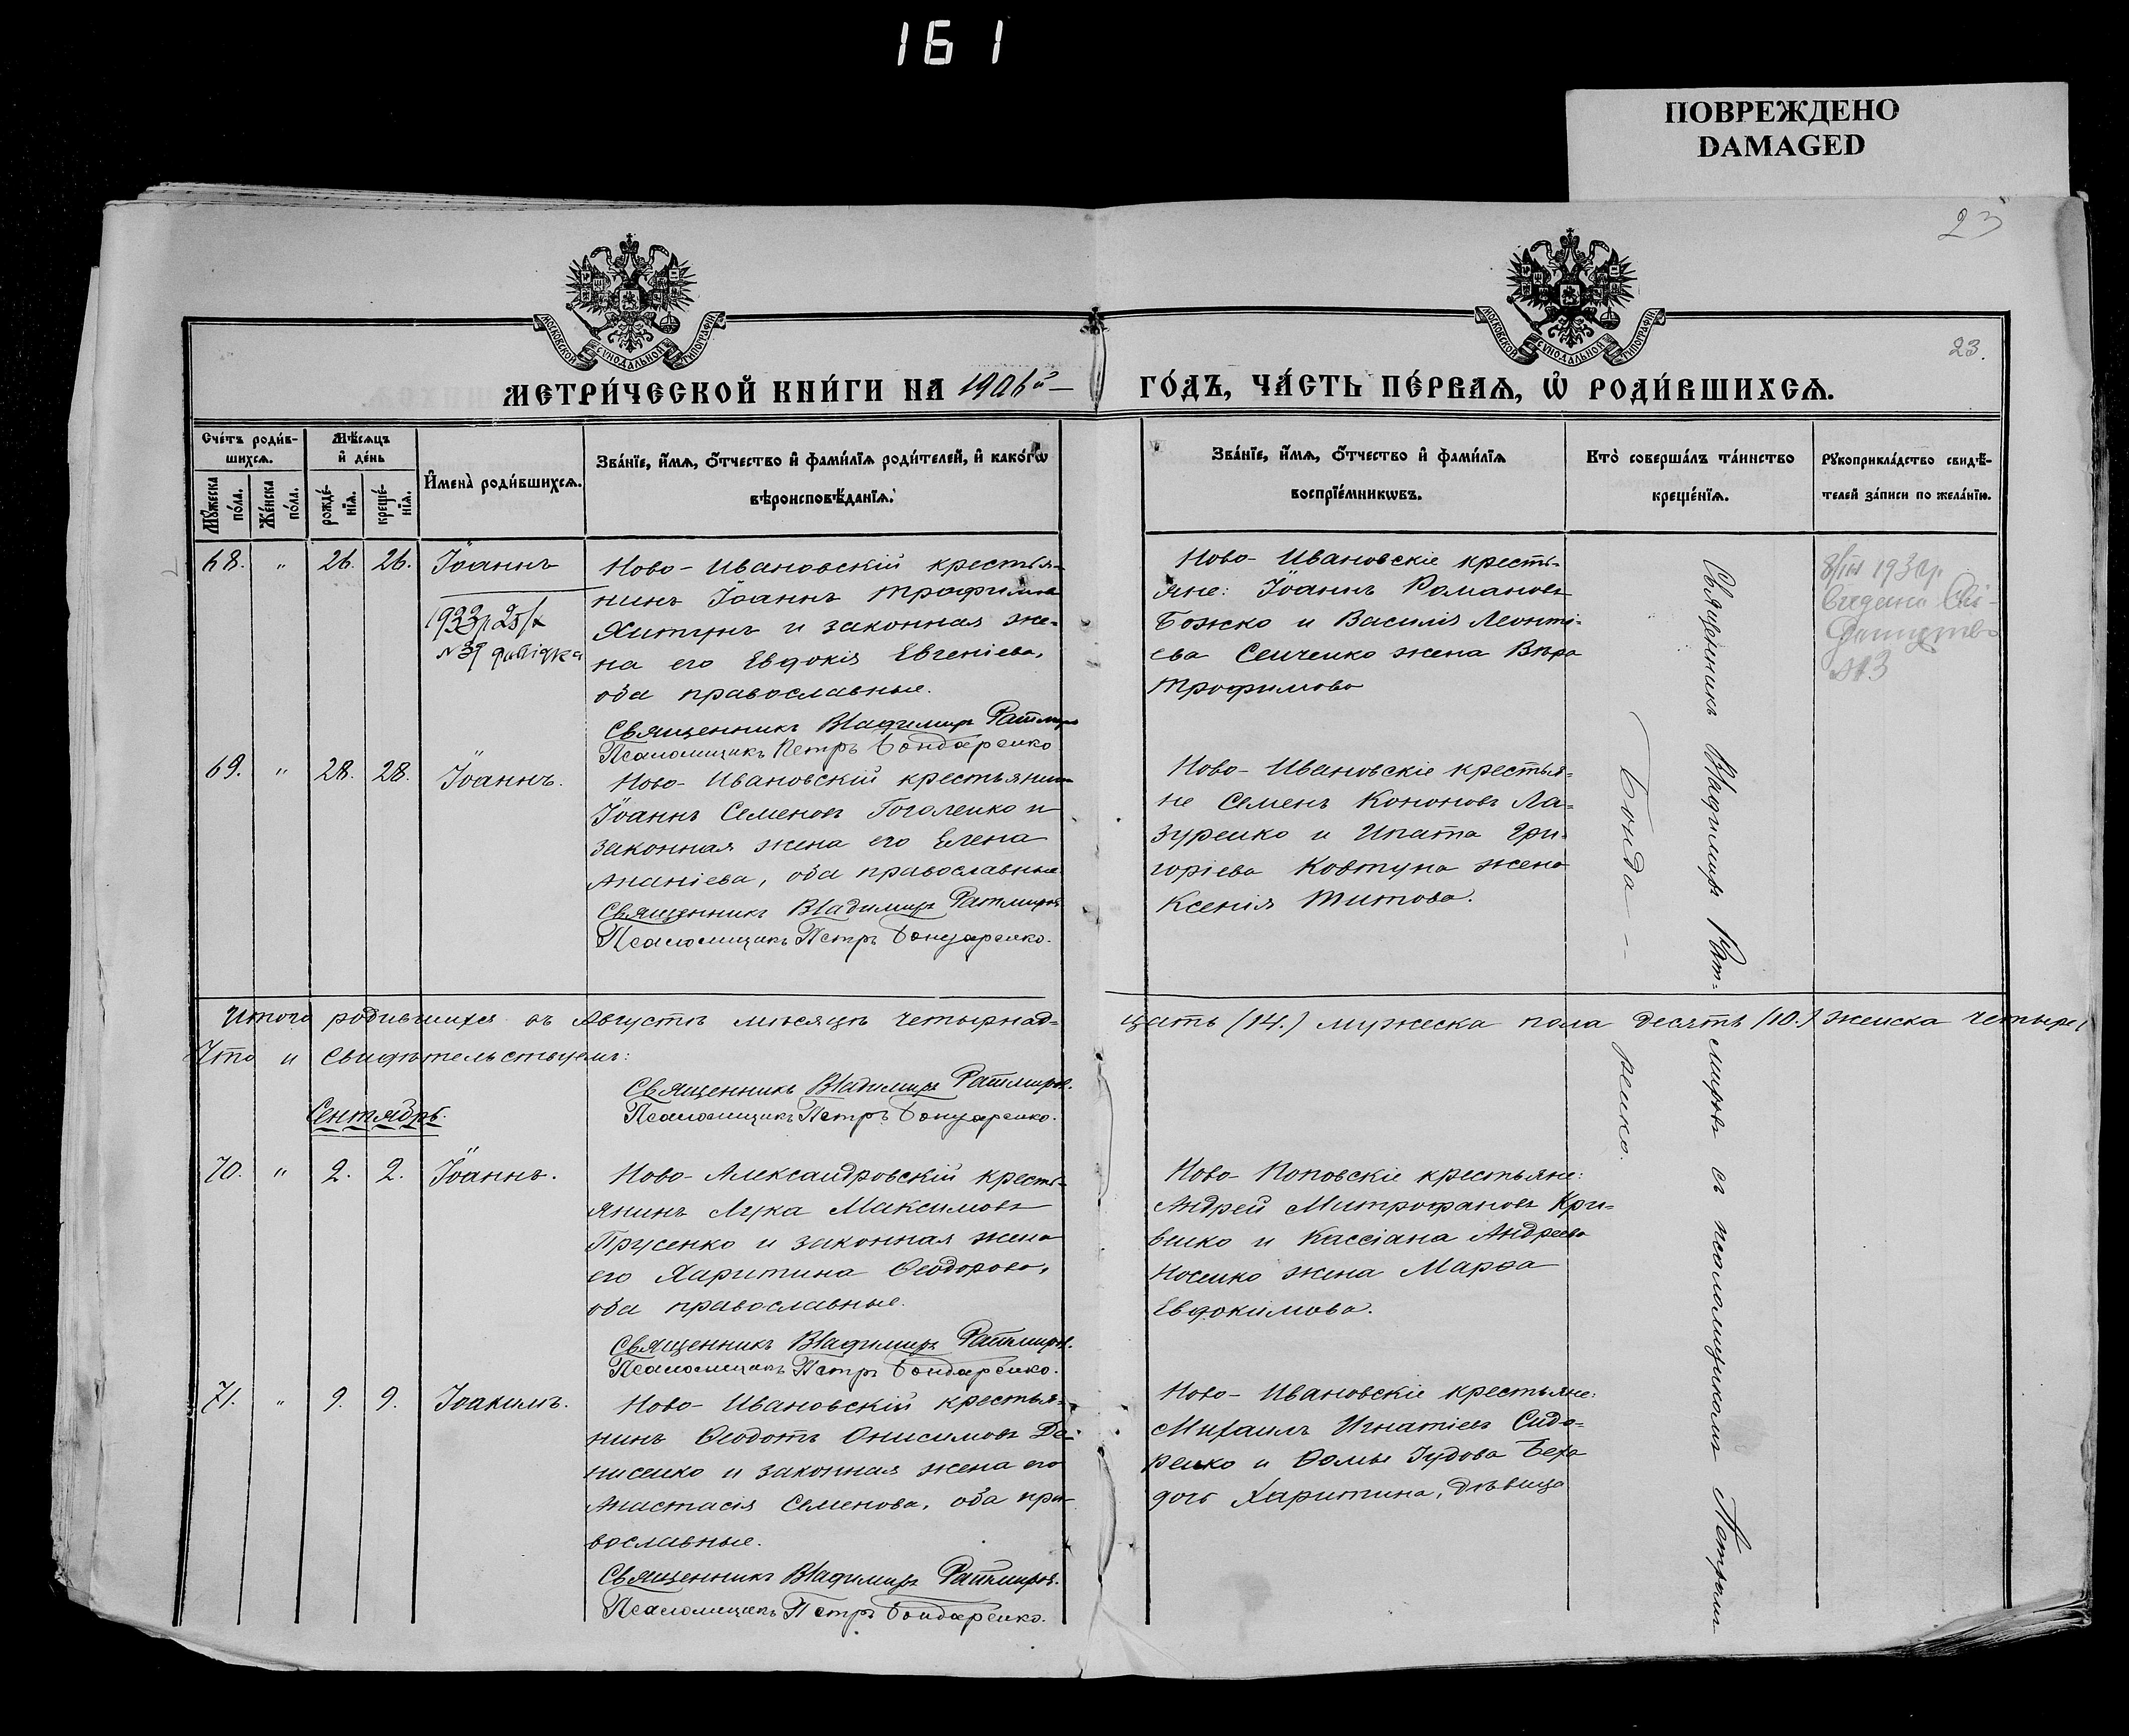 161
ПОВРЕЖДЕНО
DAMAGED
23
23.
МОСКОВСКОЙ СѴНОДАЛЬНОЙ ТИПОГРАФІИ
МОСКОВСКОЙ СѴНОДАЛЬНОЙ ТИПОГРАФІИ
МЕТРИ́ЧЕСКОЙ КНИ́ГИ НА 1906й —
ГО́ДЪ, ЧА́СТЬ ПЕ́РВАѦ, Ѡ҆ РОДИ́ВШИХСѦ.
Сче́тъ роди́в-
шихсѧ.
Мѣ́сѧцъ
и҆ де́нь
Мꙋ́жеска
по́ла.
Же́нска
по́ла.
рожде́-
нїѧ.
креще́-
нїѧ.
И҆мена̀ роди́вшихсѧ.
Зва́нїе, и҆́мѧ, ѻ҆́тчество и҆ фами́лїѧ роди́телей, и҆ како́гѡ
вѣроисповѣ́данїѧ.
Зва́нїе, и҆́мѧ, ѻ҆́тчество и҆ фами́лїѧ
воспрїе́мникѡвъ.
Кто̀ соверша́лъ та́инство
креще́нїѧ.
Рꙋкоприкла́дство свидѣ́-
телей за́писи по жела́нїю.
68. " 26. 26. Іоаннъ
Ново-Ивановскій крестья-
нинъ Іоаннъ Трофимов
Хитунъ и законная же-
на его Евдокія Евгеніева,
оба православные.
Священникъ Владимиръ Ратмиров
Псаломщикъ Петръ Бондаренко
1933р
№39 довідка
Ново-Ивановскіе кресть-
яне: Іоаннъ Романовъ
Божко и Василія Леонті-
ева Сенченко жена Вѣра
Трофимова
8/III 193
Видано Сві-
№3
69. " 28. 28. Іоаннъ.
Ново-Ивановскій крестьянин
Іоаннъ Семеновъ Гоголенко и
законная жена его Елена
Ананіева, оба православные
Священникъ Владимиръ Ратмиров
Псаломщикъ Петръ Бондаренко.
Ново-Ивановскіе крестья-
не Семенъ Кононовъ Ла-
зуренко и Ипата Гри-
горіева Ковтуна жена
Ксенія Титова.
Итого родившихся въ Августѣ мѣсяцѣ четырнад-
цать (14.) мужеска пола десять (10.) женска четыре
Что и свидѣтельствуемъ:
Священникъ Владимиръ Ратмиров.
Псаломщикъ Петръ Бондаренко.
Сентябрь.
70. " 2. 2. Іоаннъ.
Ново-Александровскій кресть-
янинъ Лука Максимовъ
Прусенко и законная жена
его Харитина Ѳеодорова,
оба православные.
Священникъ Владимиръ Ратмиров.
Псаломщикъ Петръ Бондаренко.
Ново-Поповскіе крестьяне:
Андрей Митрофановъ Кри-
венко и Кассіана Андреева
Носенко жена Марѳа
Евдокимова.
71. " 9. 9. Іоакимъ.
Ново-Ивановскій крестья-
нинъ Ѳеодотъ Онисимовъ Де-
нисенко и законная жена его
Анастасія Семенова, оба пра-
вославные.
Священникъ Владимиръ Ратмиров.
Псаломщикъ Петръ Бондаренко.
Ново-Ивановскіе крестьяне:
Михаилъ Игнатіевъ Сидо-
ренко и Ѳомы Іудова Беха
дочь Харитина, дѣвица
Священникъ Владимиръ Рат-
мировъ съ псаломщикомъ Петромъ
Бонда-
ренко.